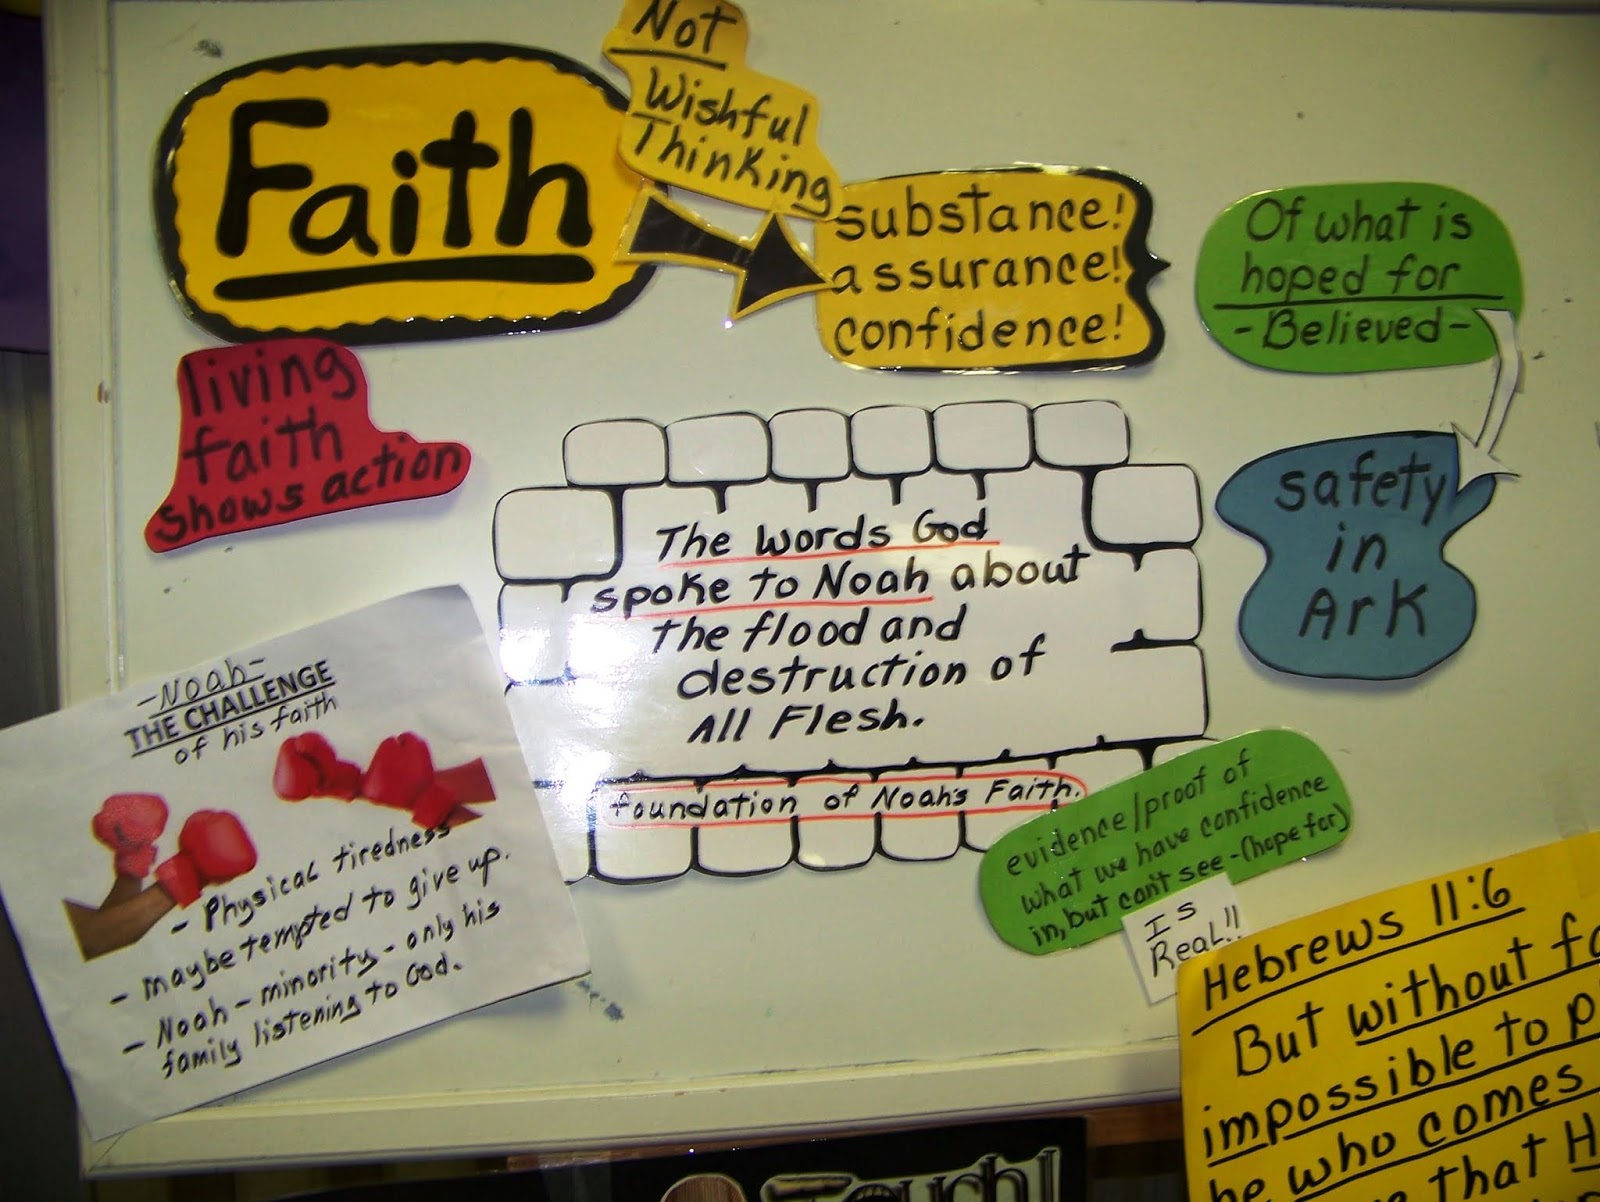 Faith
Not
Wishful
Thinking
substance!
assurance!
confidence!
Of what is
hoped for
- Believed -
safety
in
Ark
living
faith
shows action
The words God
spoke to Noah about
the flood and
destruction of
All Flesh.
foundation of Noah's Faith.
evidence/proof of
what we have confidence
in, but can't see - (hope for)
Is
Real!!
- Noah -
THE CHALLENGE
of his faith
- Physical tiredness
- maybe tempted to give up.
- Noah - minority - only his
family listening to God.
Hebrews 11:6
But without
impossible to
he who comes
that